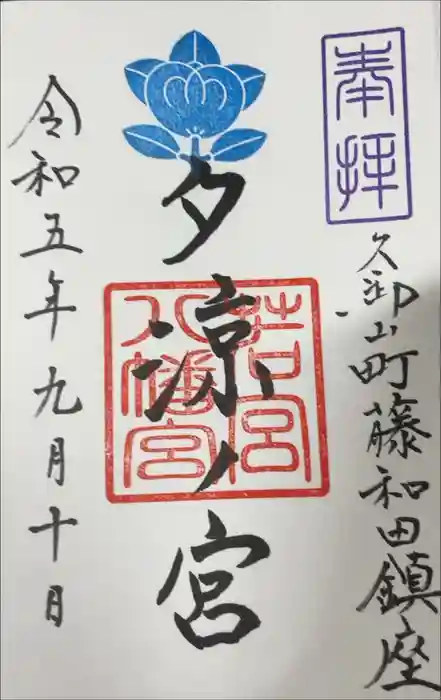 奉拝
久御山町藤和田鎮座
夕涼ノ宮
若宮
八幡宮
令和五年九月十日